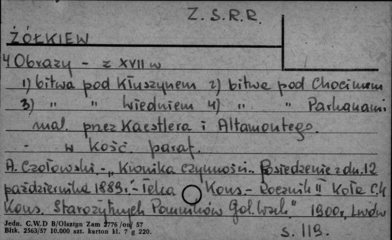 Z. S. R. R.
ŻÓŁKIEW
4 Obrazy - z XVII w
1) bitwa pod Kłuszynem 2) bitwa pod Chocimem
3) " " Wiedniem 4) " " Parkanami
mal. przez Kaestlera i Altamontego.
- w kość. paraf.
A. Czołowski. - "Kronika czynności. Posiedzenie z dn. 12
października 1889. - Teka Kons. - Rocznik II Koła C.K
Kons. Starożytnych Pomników Gal. Wsch." 1900r, Lwów
s. 119.
Jedn. C.W.D B/Olsztyn Zam 2776 /57
Bltk. 2563/57 10.000 szt. karton kl. 7 g 220.